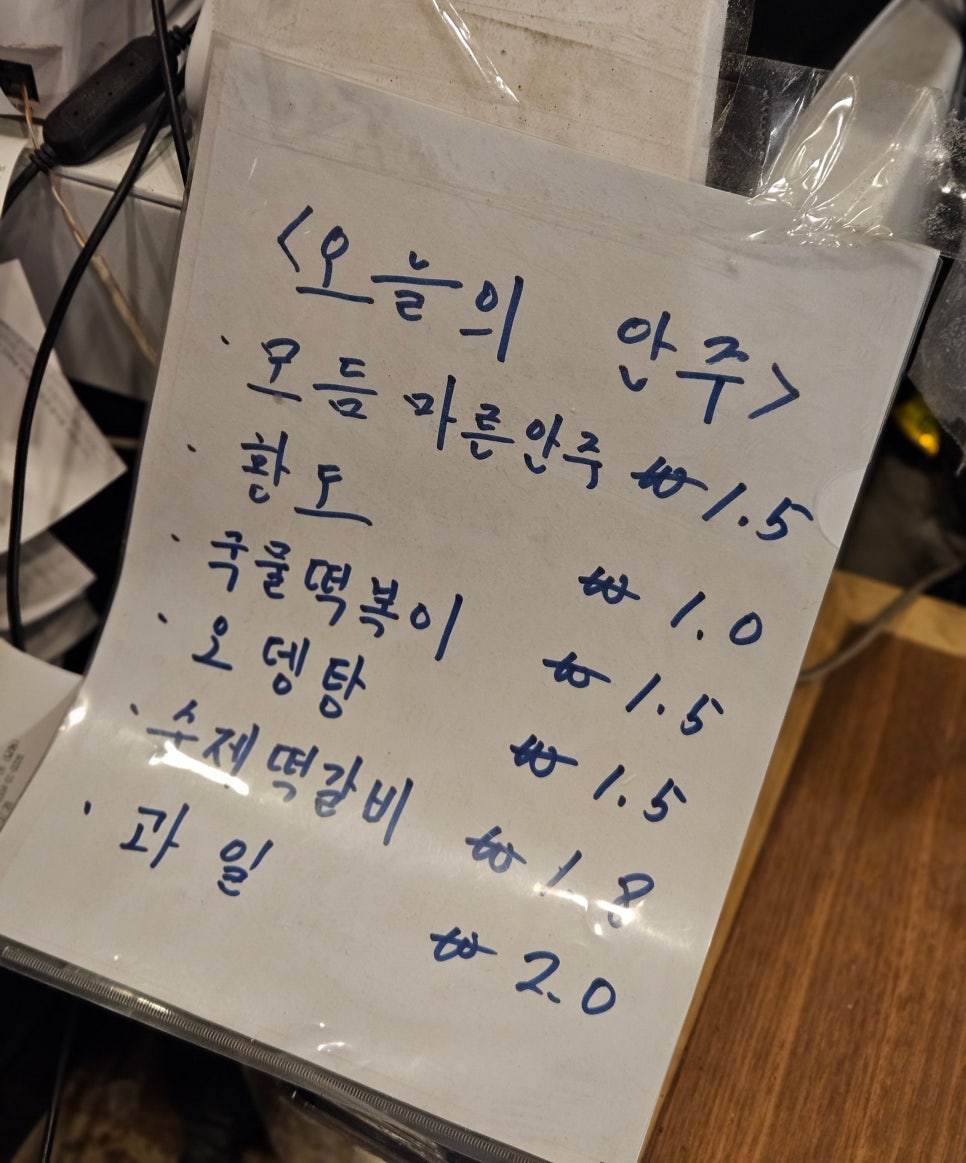 <오늘의 안주>
· 모듬 마른안주 ₩ 1.5
· 황도 ₩ 1.0
· 국물떡볶이 ₩ 1.5
· 오뎅탕 ₩ 1.5
· 수제떡갈비 ₩ 1.8
· 과일 ₩ 2.0